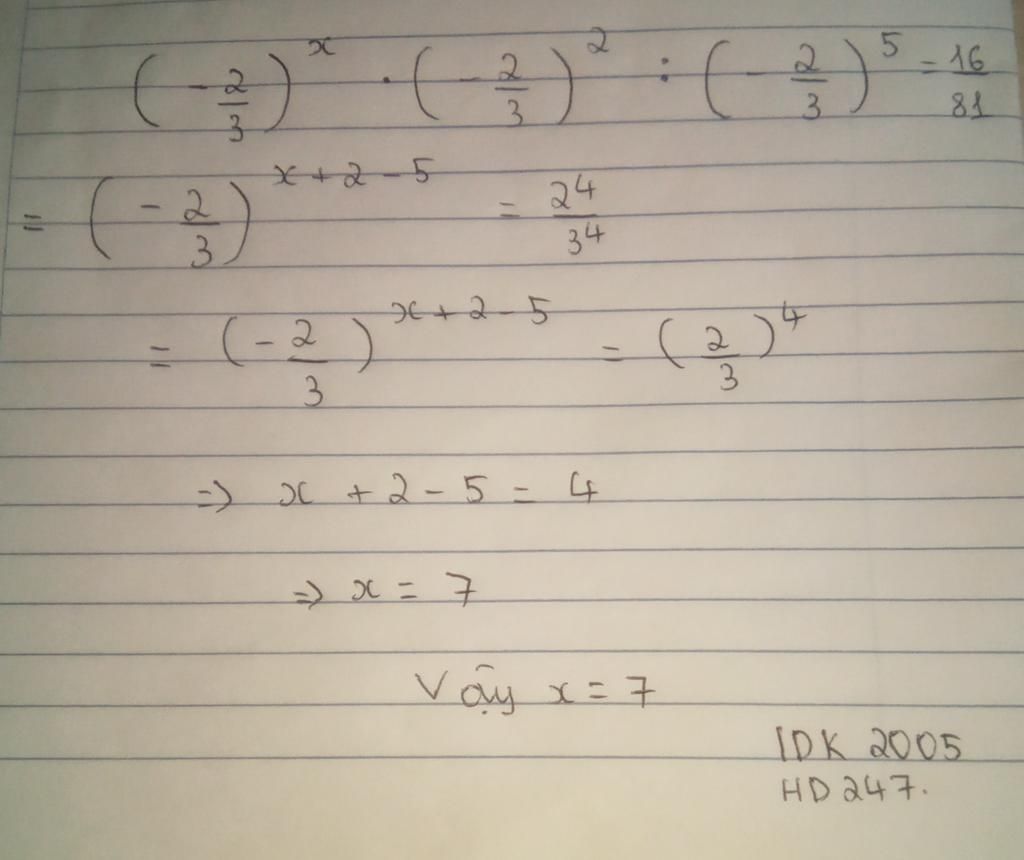 (-2/3)^x · (-2/3)^2 : (-2/3)^5 = 16/81
= (-2/3)^{x+2-5} = 2^4/3^4
= (-2/3)^{x+2-5} = (2/3)^4
=> x + 2 - 5 = 4
=> x = 7
Vậy x = 7
IDK 2005
HD 247.